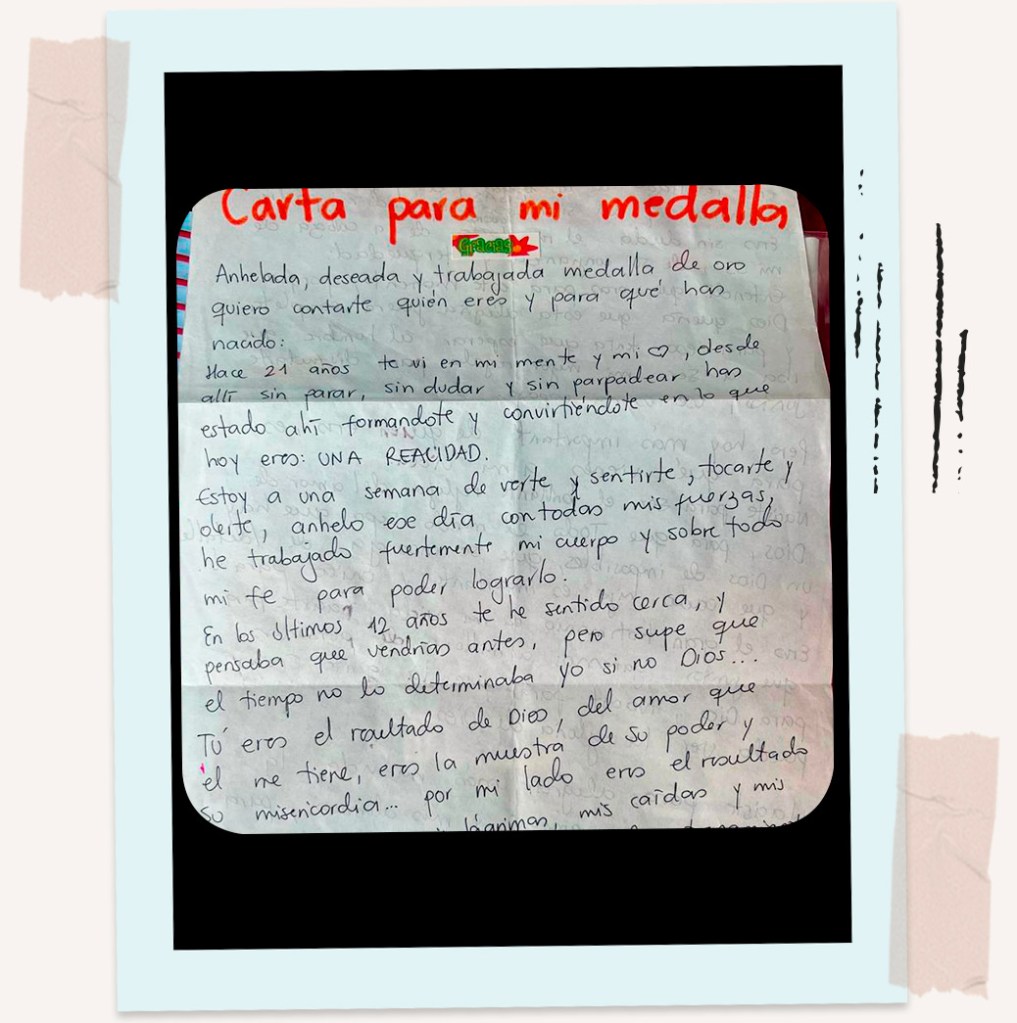 Carta para mi medalla
Gracias
Anhelada, deseada y trabajada medalla de oro
quiero contarte quién eres y para qué has
nacido:
Hace 21 años te vi en mi mente y mi ♡, desde
allí sin parar, sin dudar y sin parpadear has
estado ahí formandote y convirtiéndote en lo que
hoy eres: UNA REALIDAD.
Estoy a una semana de verte y sentirte, tocarte y
olerte, anhelo ese día con todas mis fuerzas,
he trabajado fuertemente mi cuerpo y sobre todo
mi fe para poder lograrlo.
En los últimos 12 años te he sentido cerca, y
pensaba que vendrías antes, pero supe que
el tiempo no lo determinaba yo si no Dios...
Tú eres el resultado de Dios, del amor que
él me tiene, eres la muestra de su poder y
su misericordia... por mi lado eres el resultado
lágrimas, mis caídas y mis